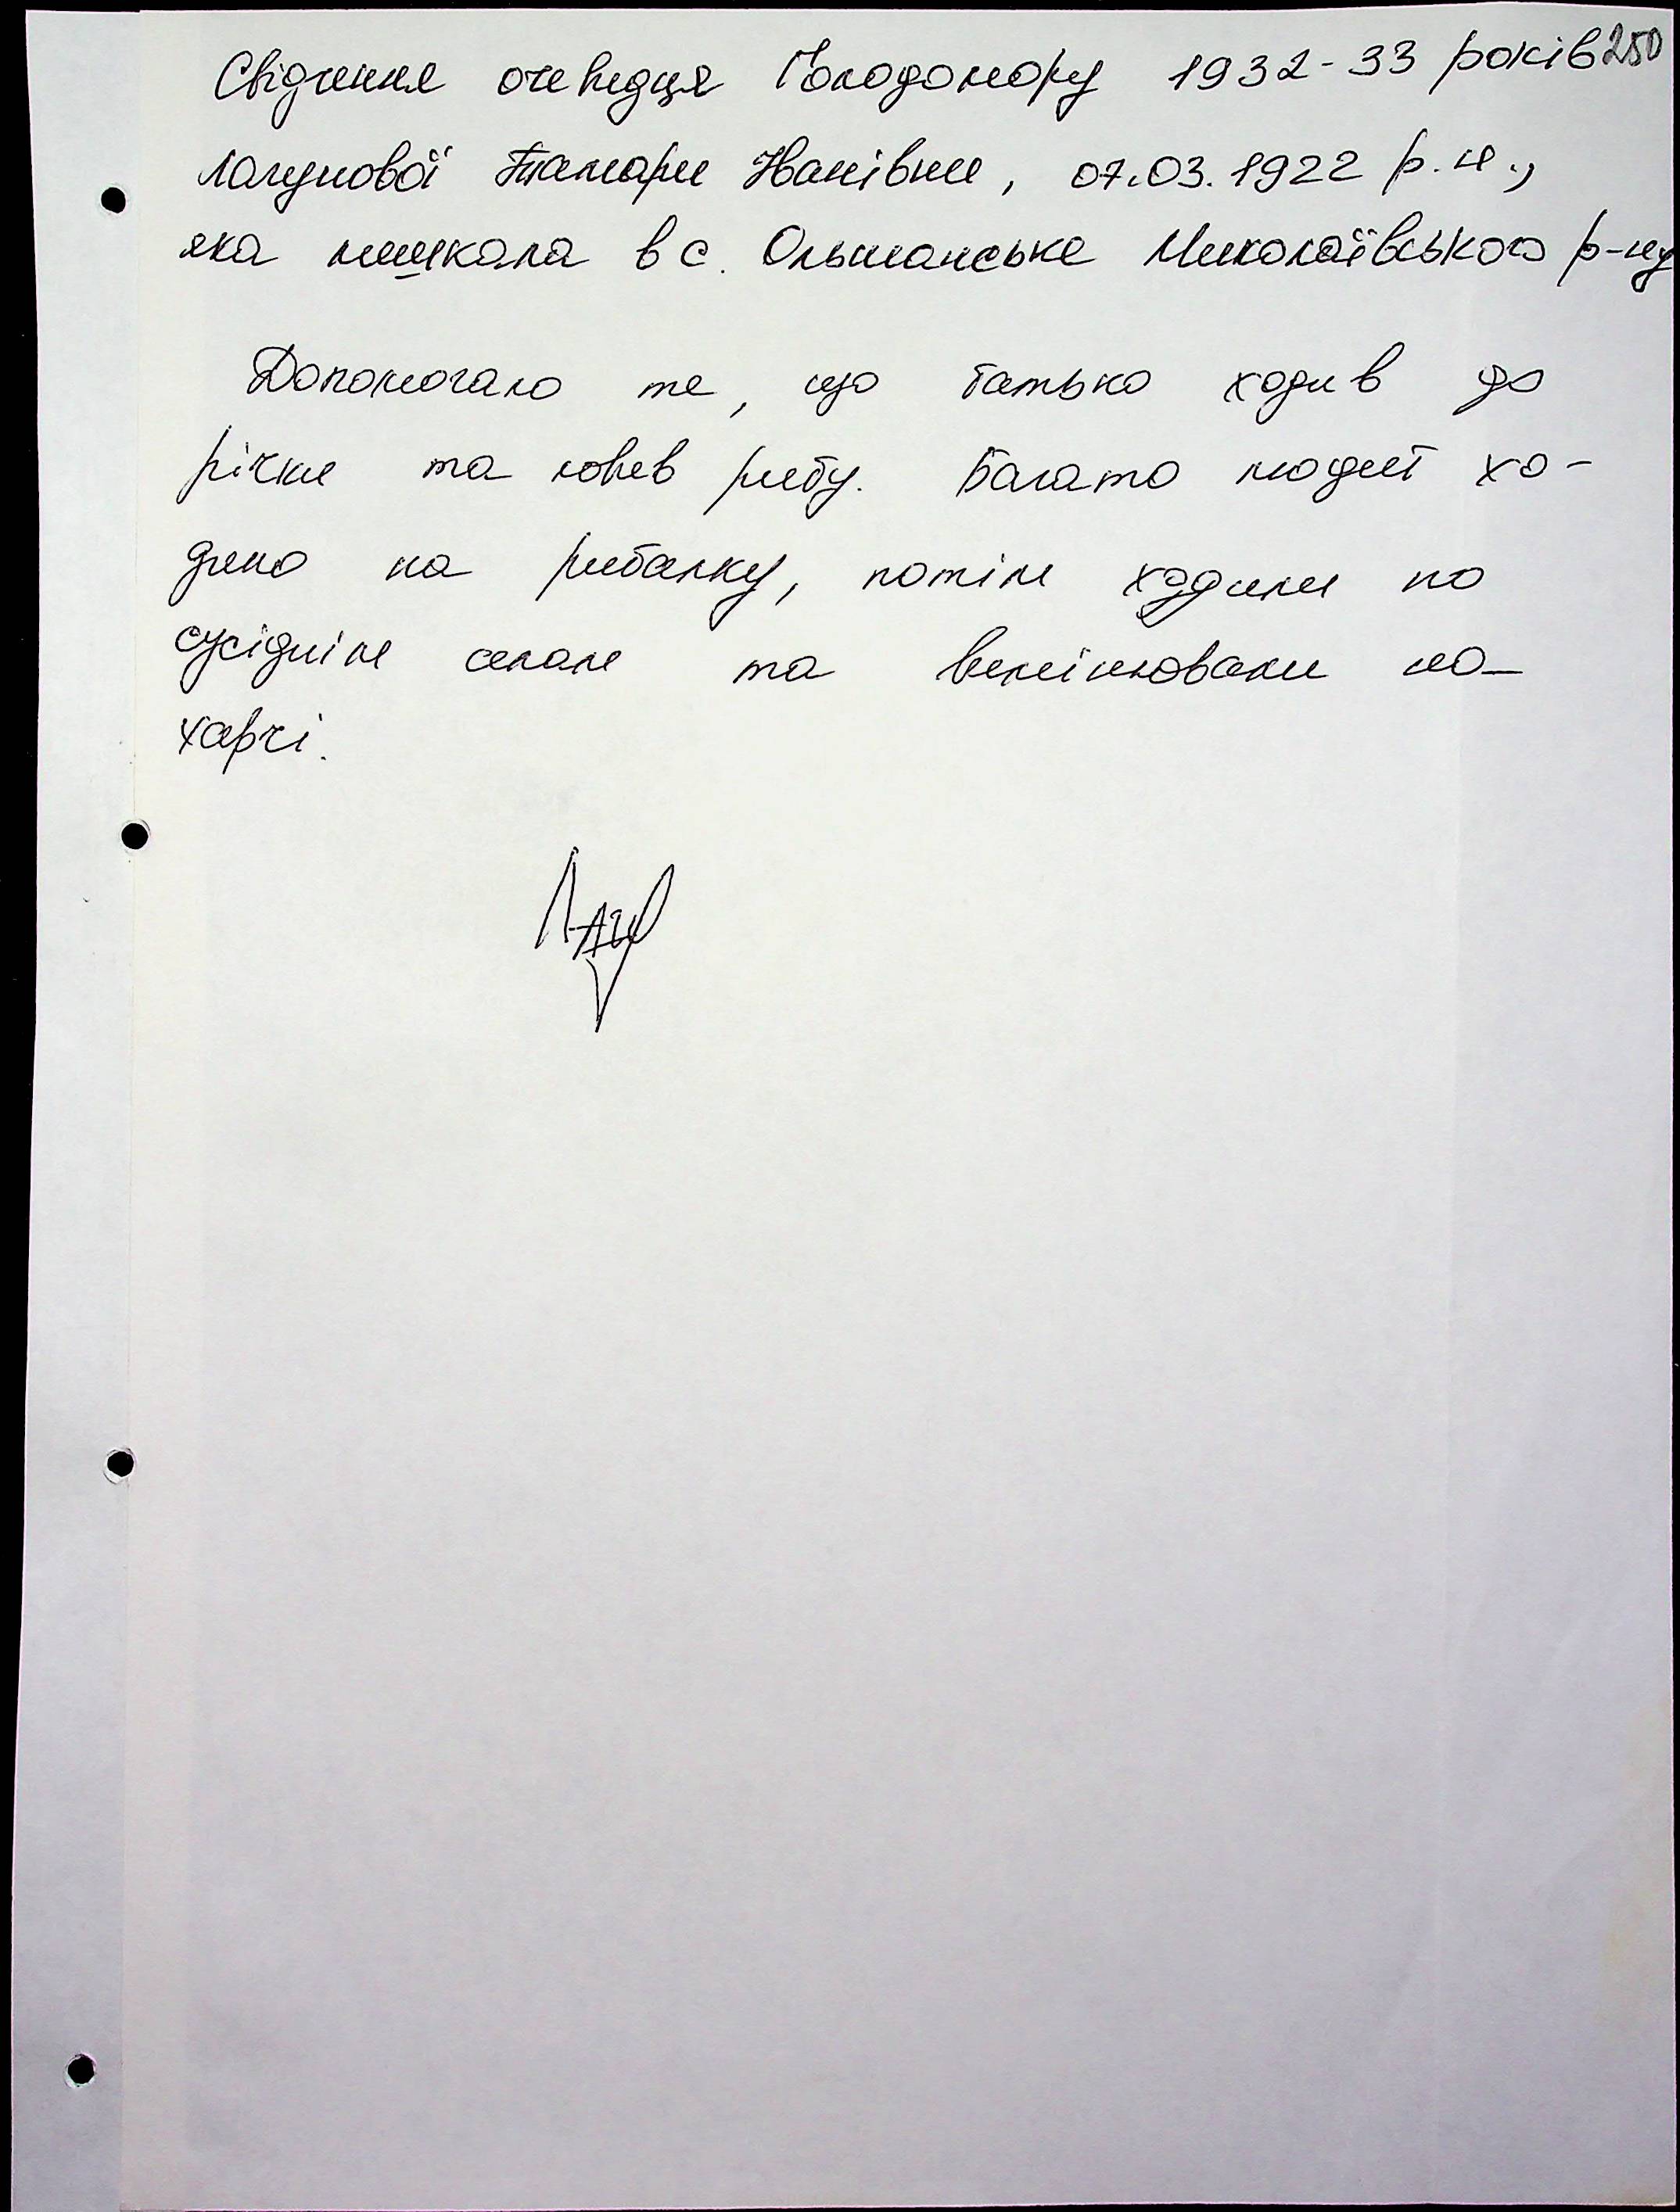 Свідчення очевидця Голодомору 1932-33 років 250
Лагунової Тамари Іванівни, 07.03.1922 р.н.,
яка мешкала в с. Ольшанське Миколаївського р-ну
Допомогало те, що батько ходив до
річки та ловив рибу. Багато людей хо-
дило на рибалку, потім ходили по
сусіднім селам та вимінювали на
харчі.